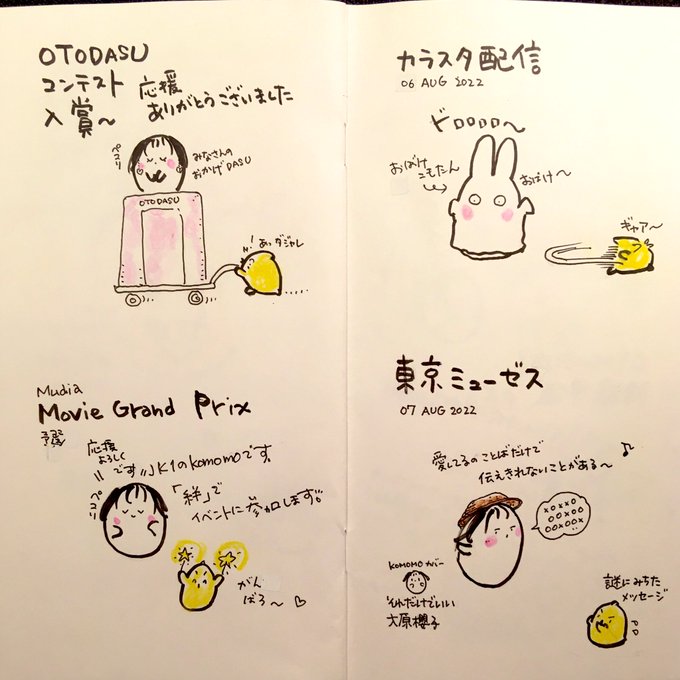 OTODASU
コンテスト 応援
入賞〜 ありがとうございました
ペコリ
みなさんの
おかげDASU
OTODASU
あっダジャレ
Mudia
Movie Grand Prix
予選
応援
よろしく
です
JK1のkomomoです。
ペコリ
「絆」で
イベントに参加します。
がん
ばろ〜
カラスタ配信
06 AUG 2022
ドロロロロ〜
おばけ
こもたん
おばけ〜
ギャア〜
東京ミューゼス
07 AUG 2022
愛してるのことばだけで
伝えきれないことがある〜
xoxxo
ooxoo
ooxoox
KOMOMOカバー
それだけでいい
大原櫻子
謎にみちた
メッセージ